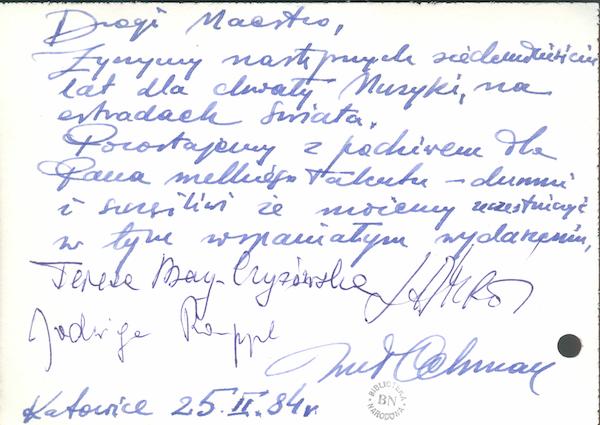 Drogi Maestro,
Życzymy następnych siedemdziesięciu
lat dla chwały Muzyki, na
estradach świata.
Pozostajemy z podziwem dla
Pana wielkiego talentu – dumni
i szczęśliwi że możemy uczestniczyć
w tym wspaniałym wydarzeniu,
Teresa Żylis-
Jadwiga Rappé
Katowice 25.II.84 r.
BIBLIOTEKA
BN
NARODOWA